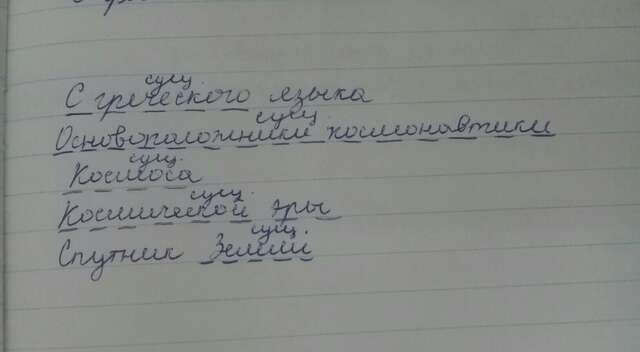 сущ.
С греческого языка
сущ.
Основоположники космонавтики
сущ.
Космоса
сущ.
Космической эры
сущ.
Спутник Земли